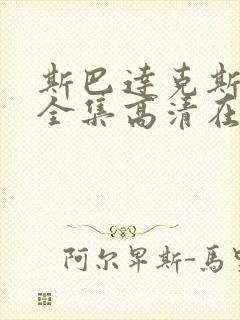 斯巴達克斯
全集高清在
阿尔卑斯-馬